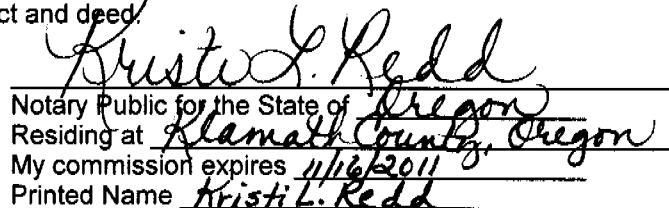 ct and deed.
Kristi L. Redd
Notary Public for the State of Oregon
Residing at Klamath County, Oregon
My commission expires 11/16/2011
Printed Name Kristi L. Redd